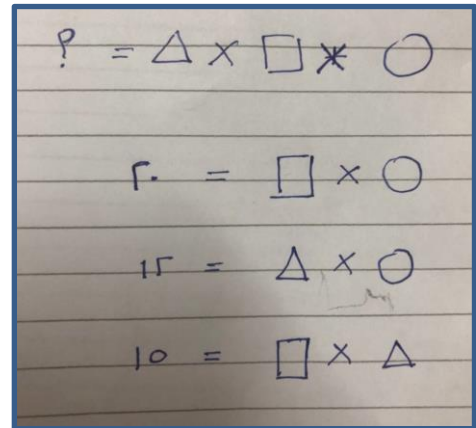 ○ * □ × △ = ؟
○ × □ = ٢٠
○ × △ = ١٢
△ × □ = ١٥